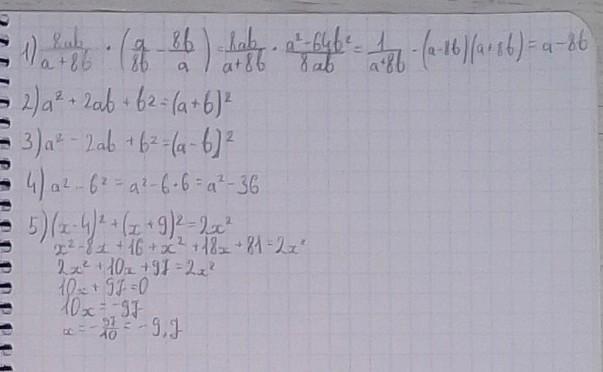 1) 8ab/(a+8b) · (a/8b - 8b/a) = 8ab/(a+8b) · (a²-64b²)/8ab = 1/(a+8b) · (a-8b)(a+8b) = a-8b
2) a² + 2ab + b² = (a+b)²
3) a² - 2ab + b² = (a-b)²
4) a² - 6² = a² - 6·6 = a² - 36
5) (x-4)² + (x+9)² = 2x²
x² - 8x + 16 + x² + 18x + 81 = 2x²
2x² + 10x + 97 = 2x²
10x + 97 = 0
10x = -97
x = -97/10 = -9,7